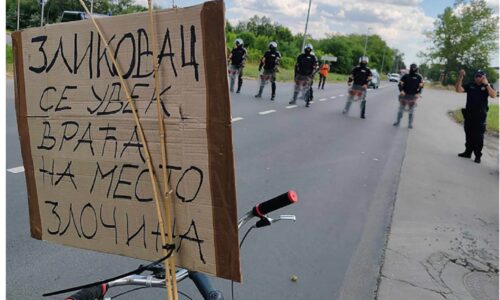 ЗЛИКОВАЦ
СЕ УВЕК
ВРАЋА
НА МЕСТО
ЗЛОЧИНА